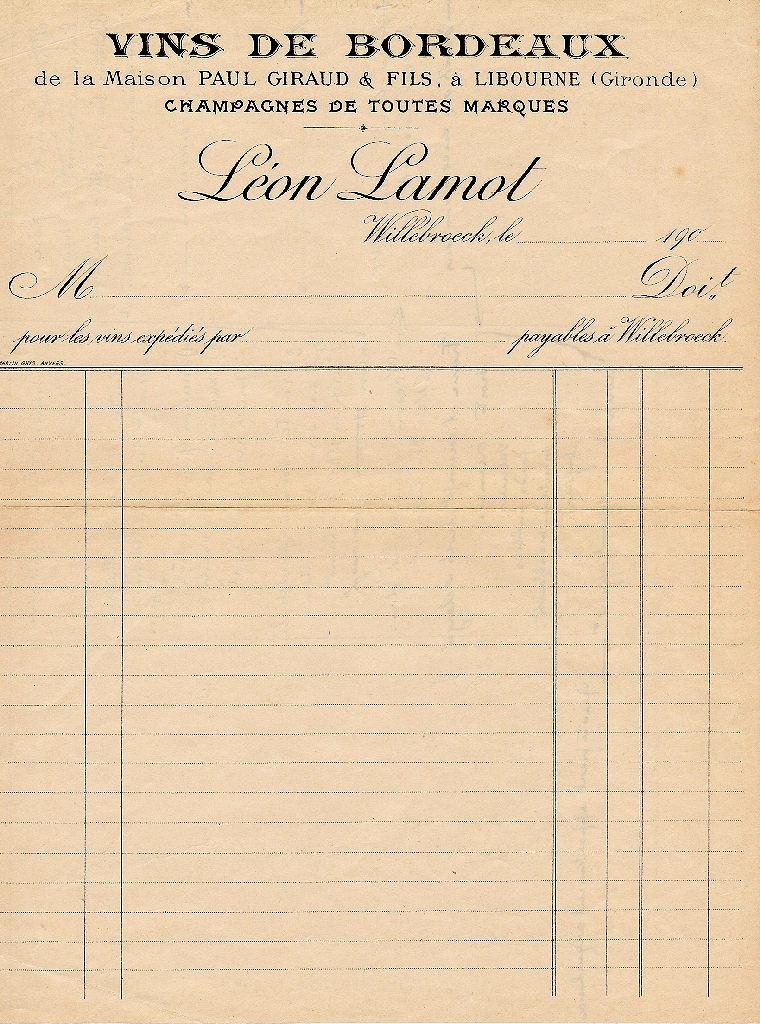 VINS DE BORDEAUX
de la Maison PAUL GIRAUD & FILS, à LIBOURNE (Gironde)
CHAMPAGNES DE TOUTES MARQUES
Léon Lamot
Willebroeck, le 190
M Doit
pour les vins expédiés par payables à Willebroeck.